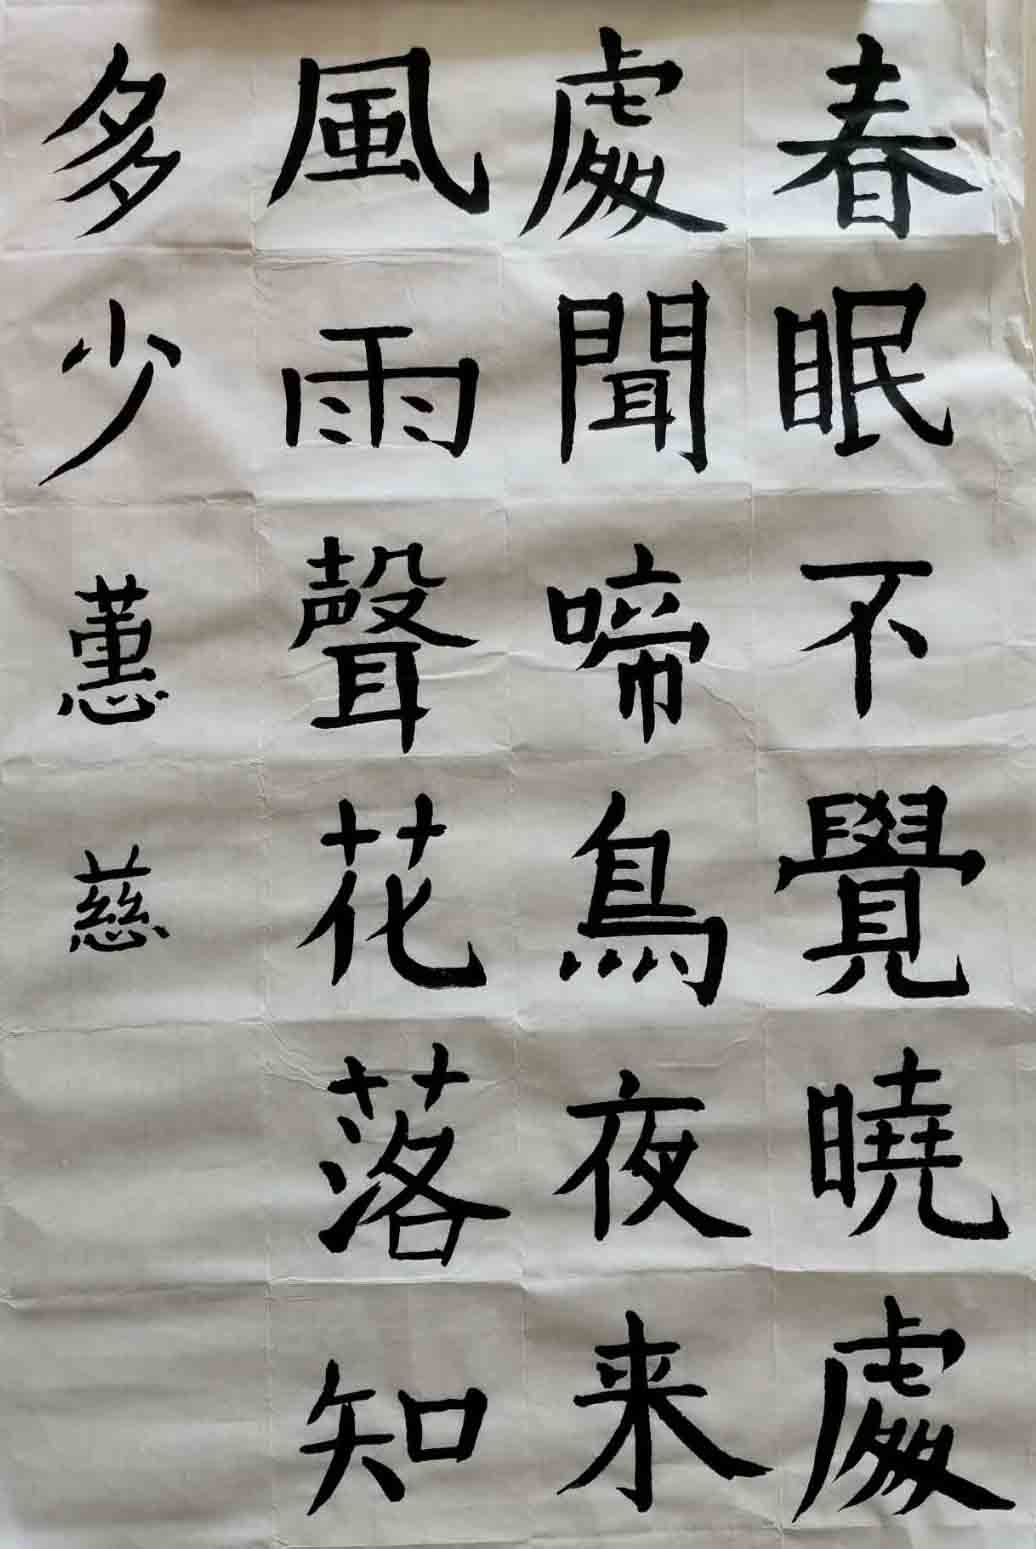 春眠不覺曉處
處聞啼鳥夜来
風雨聲花落知
多少 蕙慈